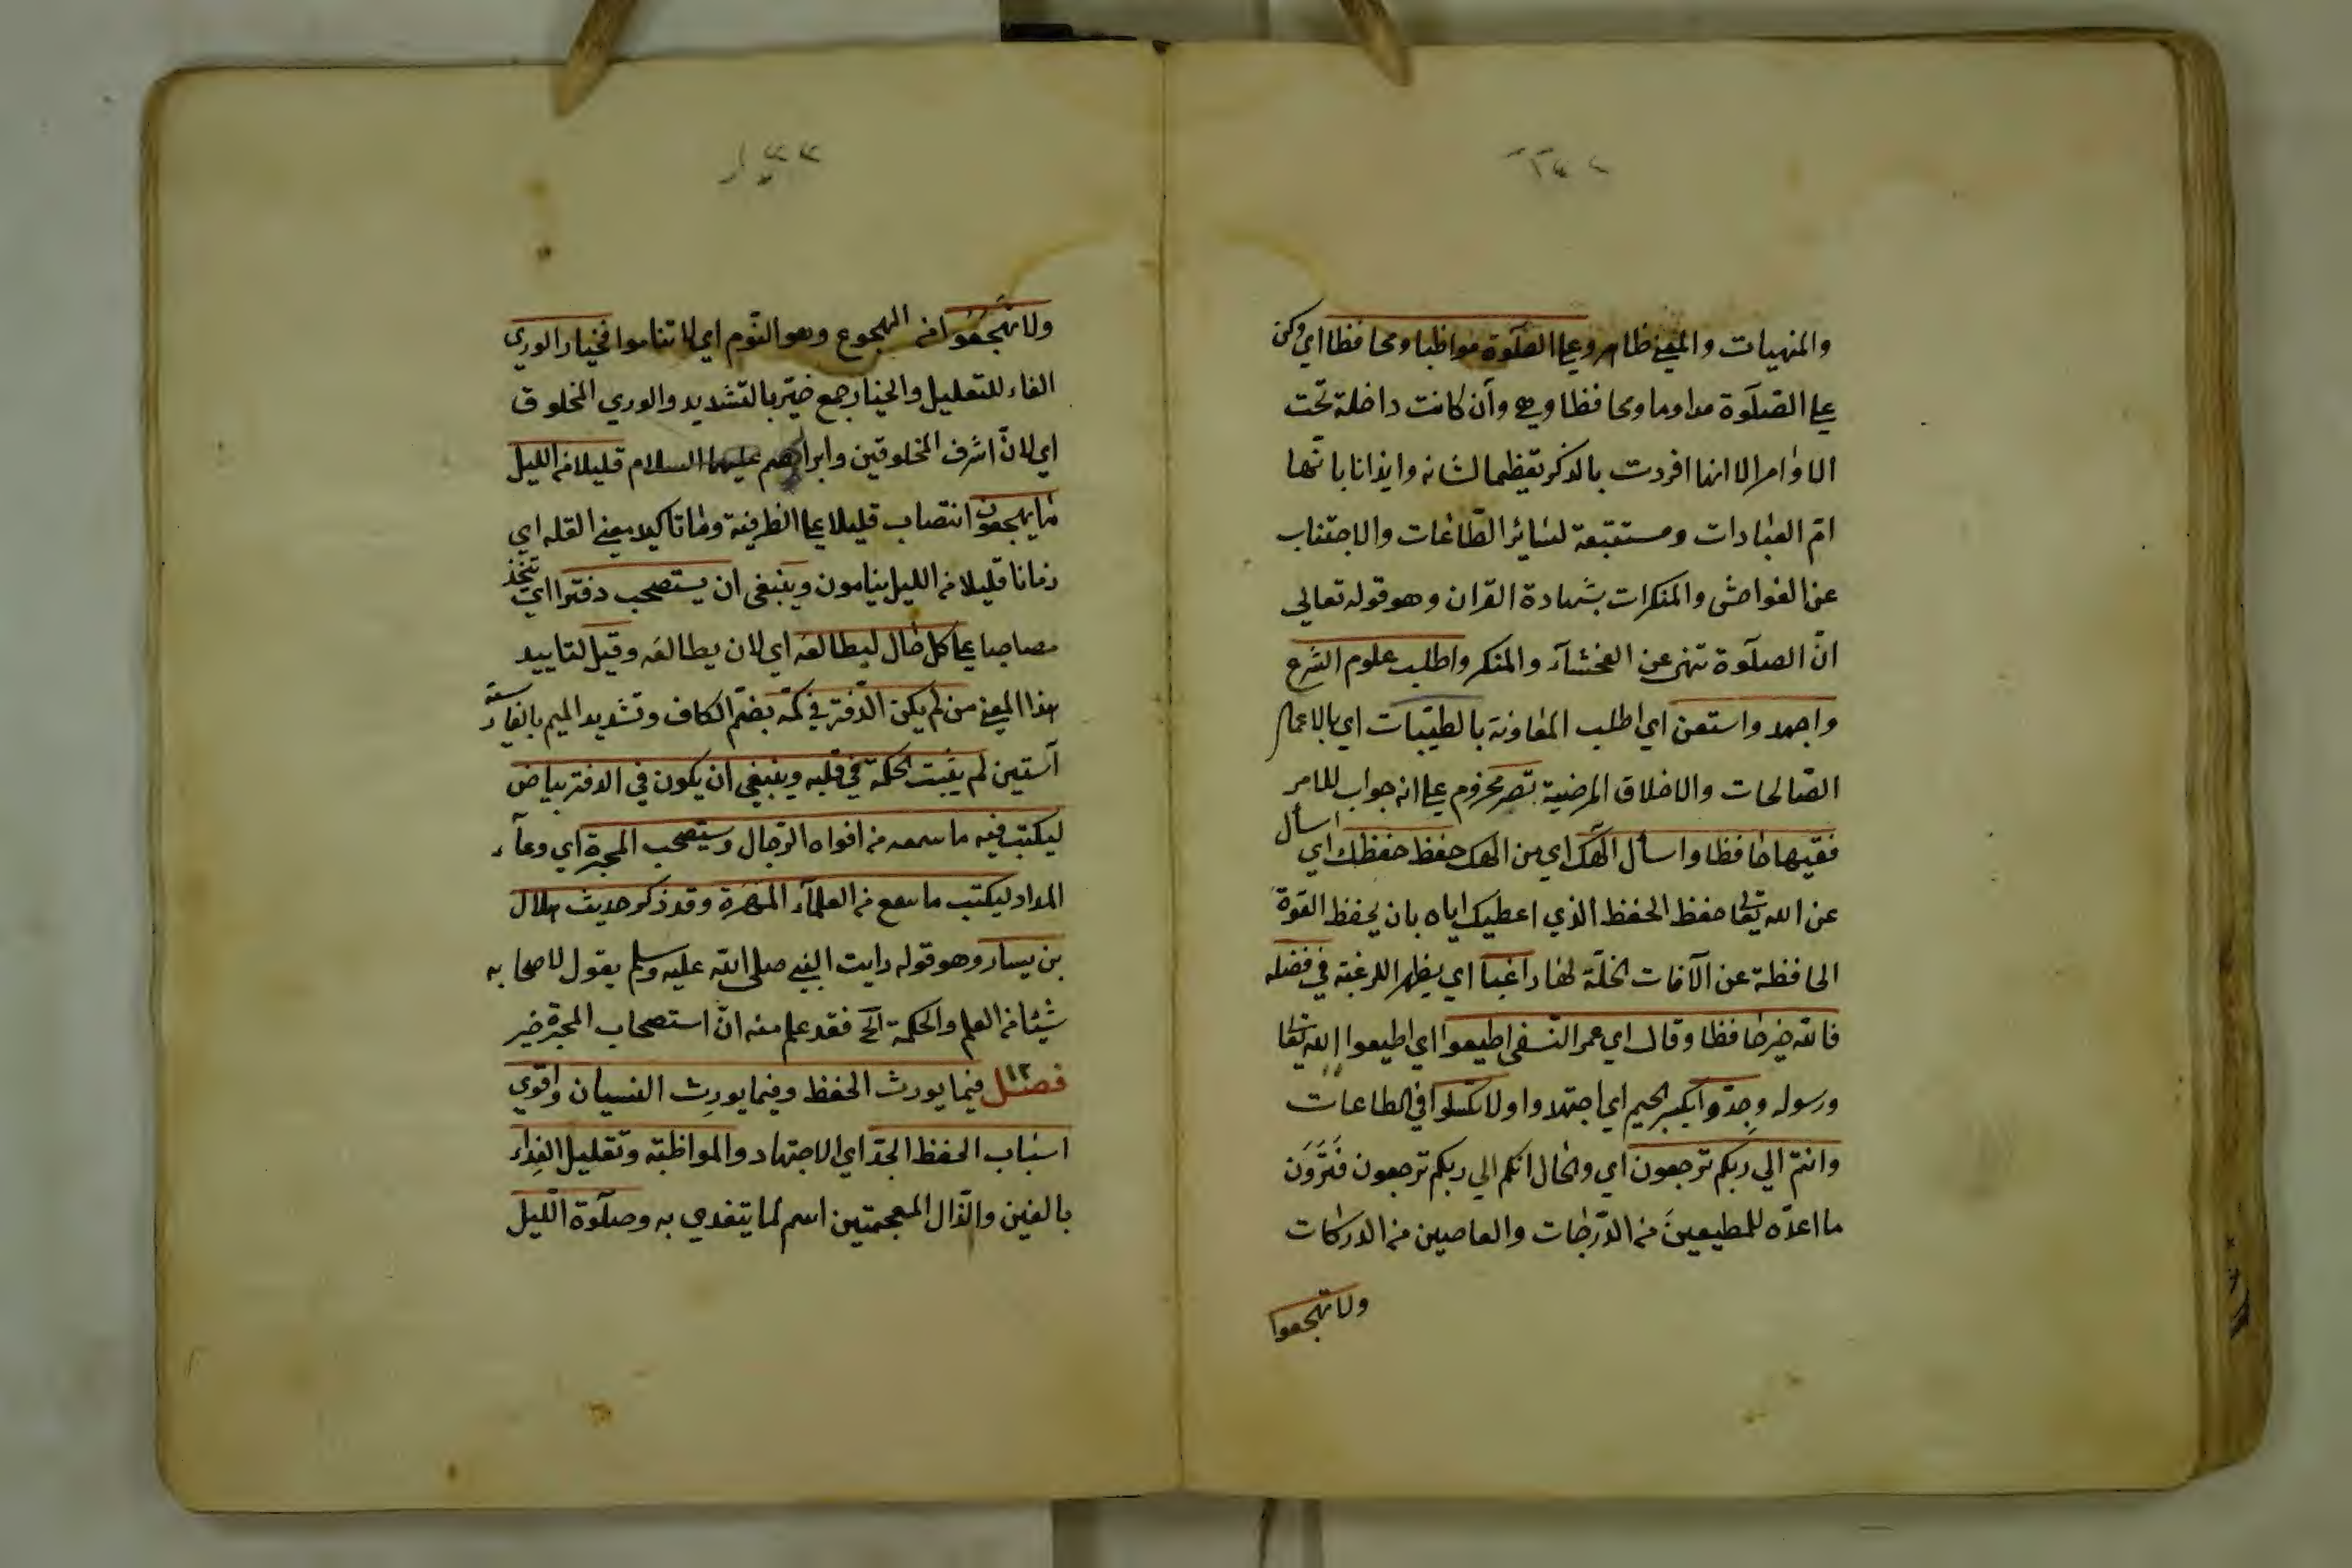 والمنهيات والمعنى ظاهر وعلى الصلوة مواظبا ومحافظا اي وكن
على الصلوة مداوما ومحافظا وهي وأن كانت داخلة تحت
الاوامر الا انها افردت بالذكر تعظيما لشانه وايذانا بانها
ام العبادات ومستتبعة لسائر الطاعات والاجتناب
عن الفواحش والمنكرات بشهادة القران وهو قوله تعالى
انّ الصلوة تنهى عن الفحشآء والمنكر واطلب علوم الشرع
واجهد واستعن اي اطلب المعاونة بالطيبات اي بالاعمال
الصالحات والاخلاق المرضية تصر مجزوم على انه جواب للامر
فقيها حافظا واسأل الهك اي من الهك حفظ حفظك اي اسأل
عن الله تعالى حفظ الحفظ الذي اعطيك اياه بان يحفظ القوة
الحافظة عن الآفات المخلّة لها راغبا اي يظهر الرغبة في فضله
فالله خير حافظا وقال اي عمر النسفي اطيعوا اي اطيعوا الله تعالى
ورسوله وجدّوا بكسر الجيم اي اجتهدوا ولا تكسلوا في الطاعات
وانتم الي ربكم ترجعون اي والحال انكم الي ربكم ترجعون فَتَرَوْنَ
ما اعدّه للمطيعين من الدّرجات والعاصين من الدركات
ولا تهجعوا
ولا تهجعُوا من الهجوع وهو النّوم اي لا تناموا فخيار الوري
الفاء للتعليل والخيار جمع خيّر بالتشديد والوري المخلوق
اي لانّ اشرف المخلوقين وابراهيم عليهما السلام قليلا من الليل
ما يهجعون انتصاب قليلا على الظرفية وما تاكيد لمعنى القله اي
زمانا قليلا من الليل ينامون وينبغي ان يستصحب دفترا اي يتخذ
مصاحبا على كل حال ليطالعه اي لان يطالعه وقيل لتاييد
هذا المعنى من لم يكن الدّفتر في كمّه بضمّ الكاف وتشديد الميم بالفارسية
آستين لم يثبت الحكمة في قلبه وينبغي ان يكون في الدفتر بياض
ليكتب فيه ما سمعه من افواه الرّجال ويستصحب المحبرة اي وعآء
المداد ليكتب ما سمع من العلمآء المهرة وقد ذكر حديث هلال
بن يسار وهو قوله رايت النبي صلى الله عليه وسلم يقول لاصحابه
شيئا من العلم والحكمة الخ فقد علم منه انّ استصحاب المحبرة خير
فصل ١٢ فيما يورث الحفظ وفيما يورِث النسيان واقوي
اسباب الحفظ الجدّ اي الاجتهاد والمواظبة وتقليل الغِذاء
بالغين والذّال المعجمتين اسم لما يتغدي به وصلوة اللّيل